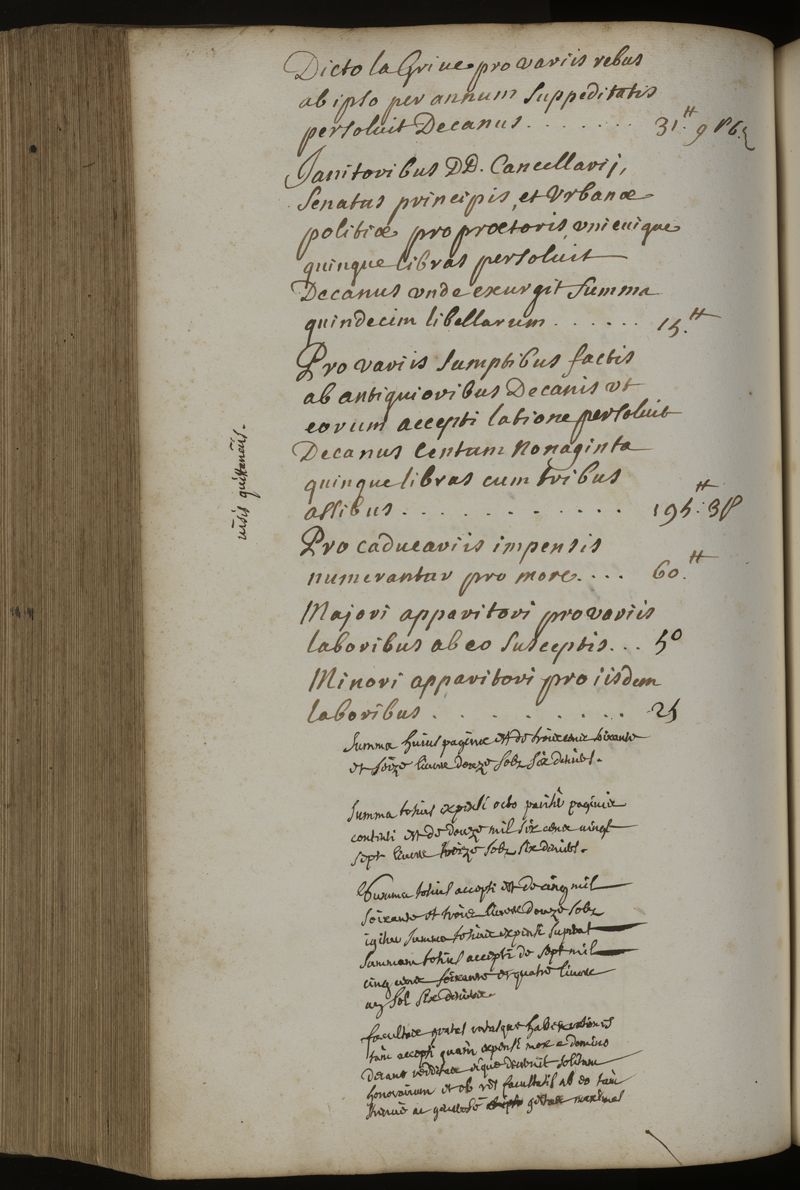 Dicto la Grive pro variis rebus
ab ipso per annum suppeditatis
persolvit Decanus . . . . . . . 31.tt 9 s 6.d
Janitoribus DD. Cancellarij,
Senatus principis, et Vrbanæ
politiæ proprætoris, vnicuique
quinque libras persolvit
Decanus vnde exurgit summa
quindecim libellarum . . . . . . 15.tt
Pro variis sumptibus factis
ab antiquioribus Decanis vt
eorum accepti latione persolvit
Decanus Centum Nonaginta
quinque libras cum tribus
assibus . . . . . . . . . . . . 195.tt 3 s
visis quittanciis.
Pro caducariis impensis
numerantur pro more. . . . 60.tt
Majori apparitori pro variis
laboribus ab eo susceptis. . . 50
Minori apparitori pro iisdem
laboribus . . . . . . . . . 25
Summa huius paginæ est de trois cens soixante
et seize livres douze solz six deniers.
Summa totius expensi octo paginis
contenti est de douze mil six cens vingt
sept livres treize solz six deniers.
Summa totius accepti est de cinq mil
soixante et trois livres douze solz
igitur summa totius expensi superat
summam totius accepti de sept mil
cinq cens soixante et quatre livres
un sol six deniers.
facultas gratas ratasque habet rationes
tam accepti quam expensi mox a domino
decano redditas eique decrevit solitum
honorarium et ob res facultatis ab eo tam
strenue ac gratas maximas